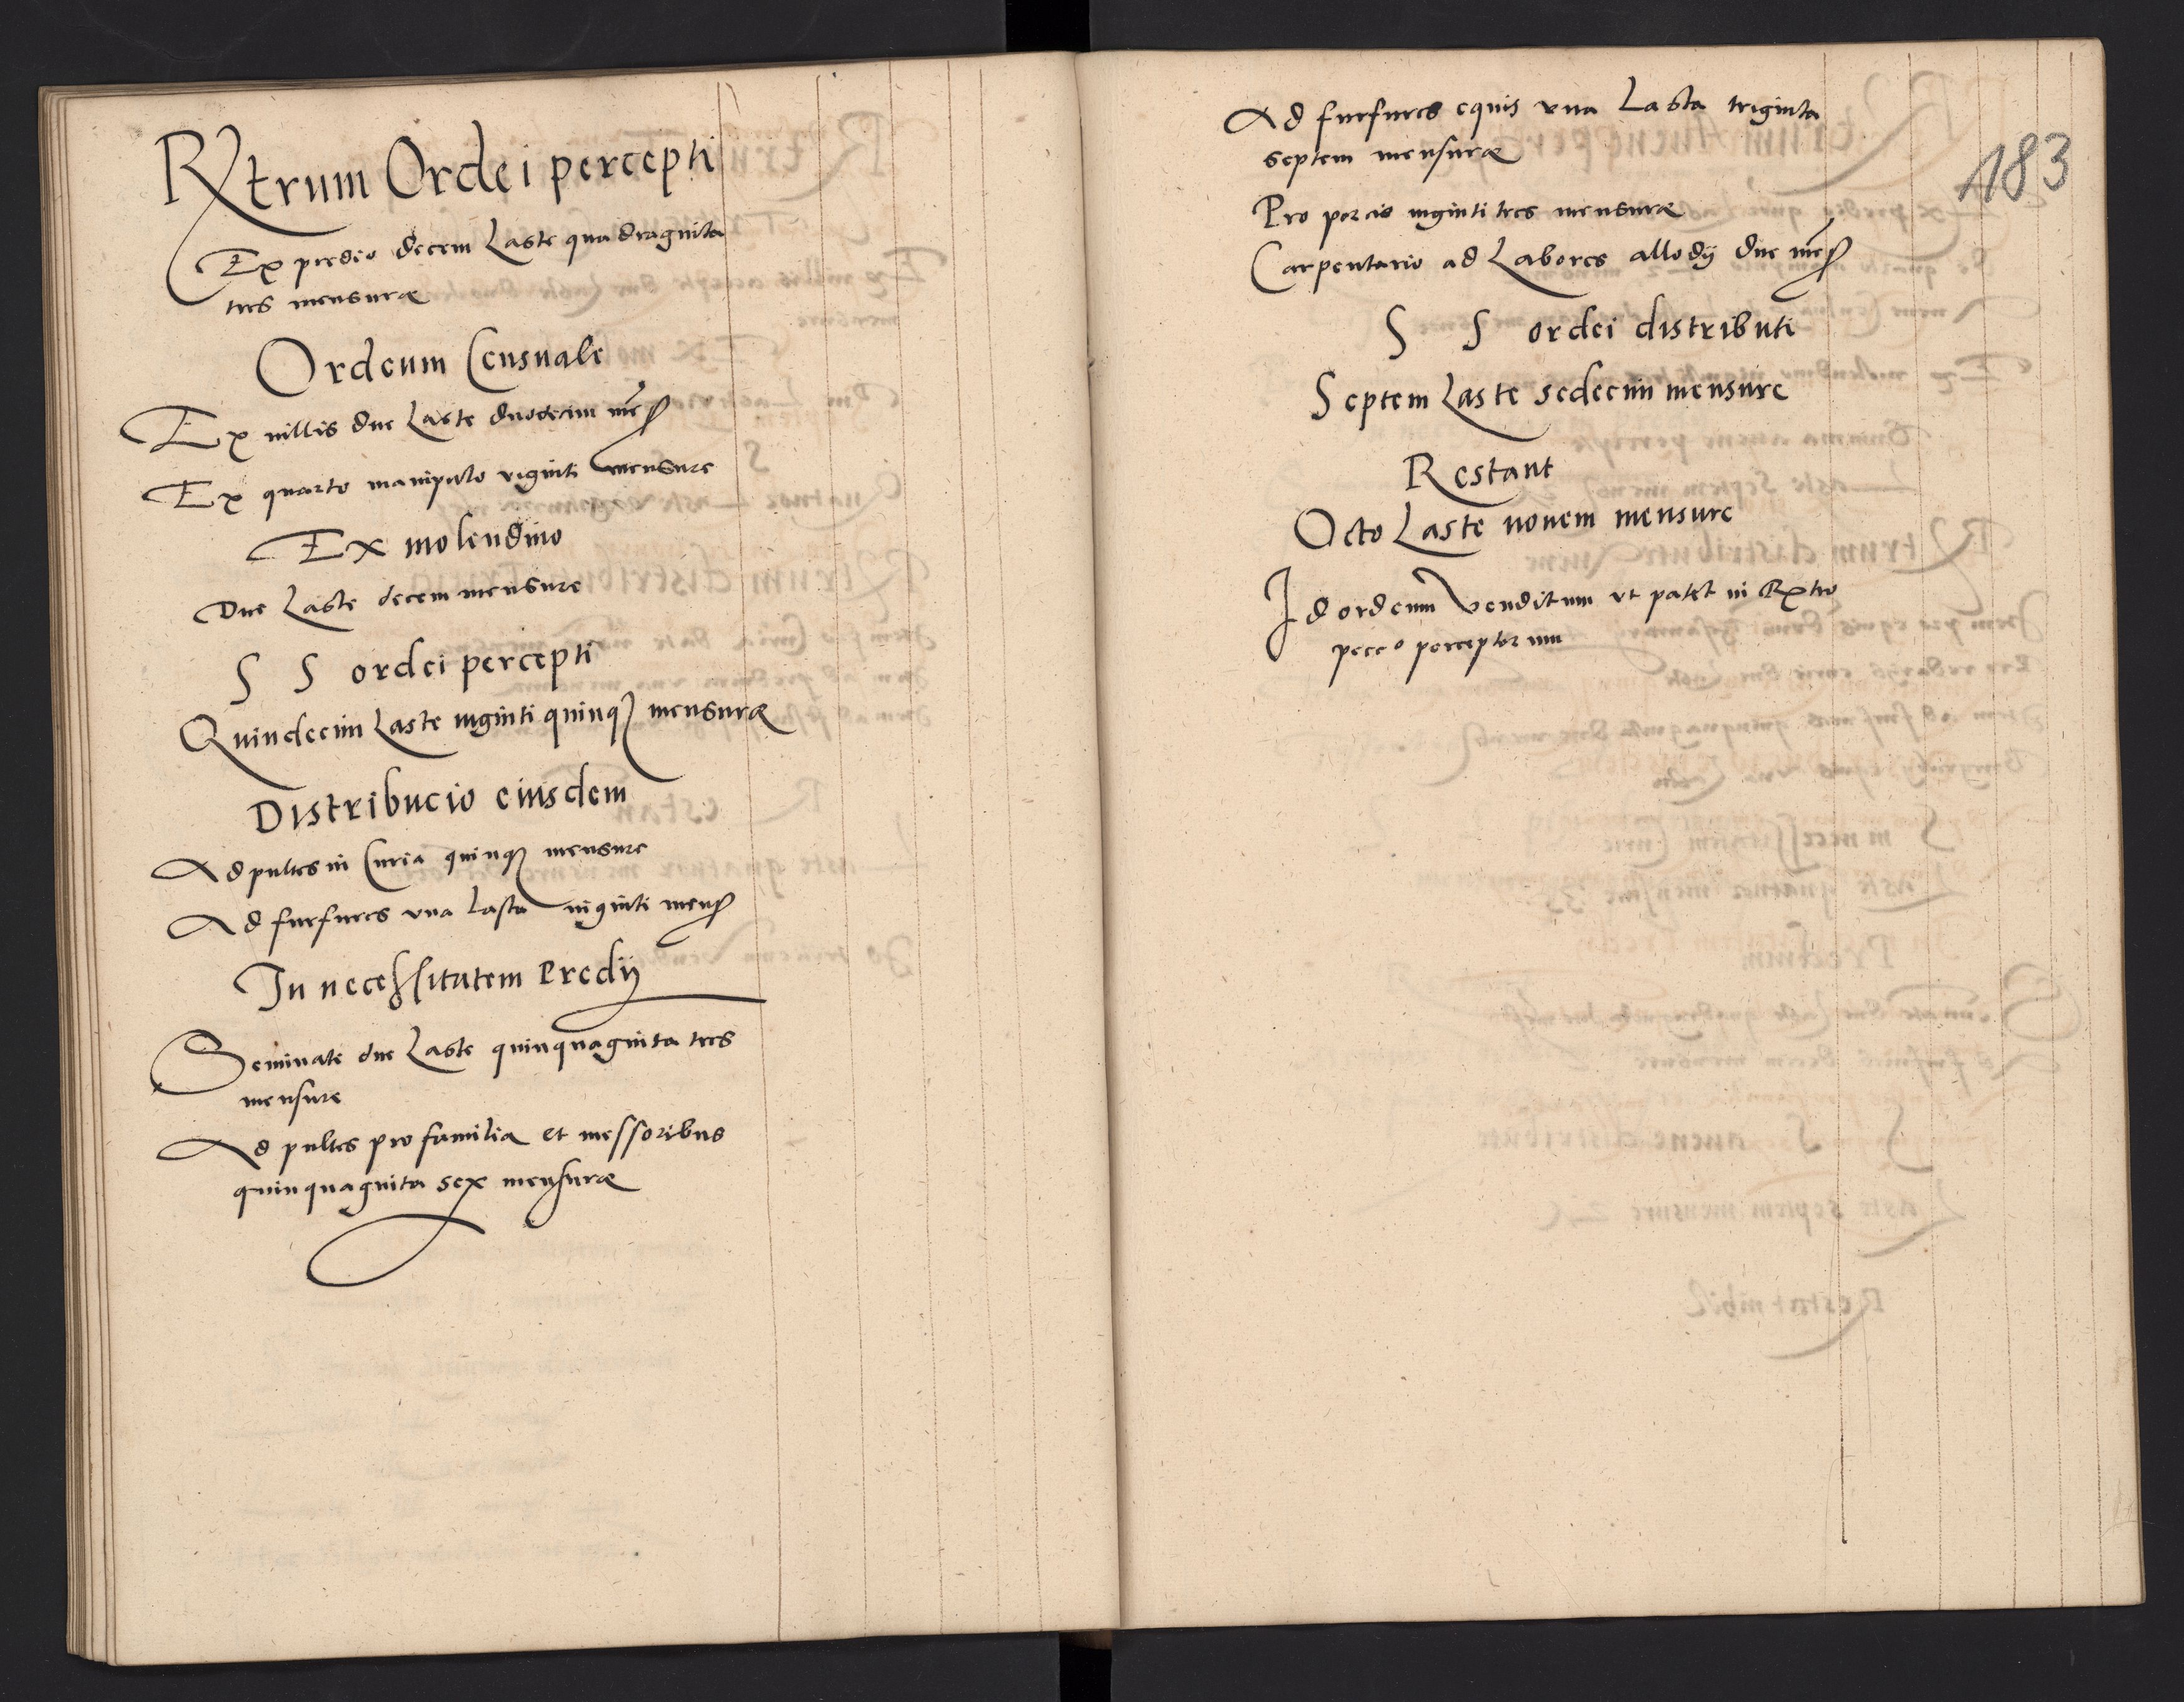 Rxtrum Ordei percepti
Ex predio decem Laste quadraginta
tres mensuræ
Ordeum Censuale
Ex uillis due Laste duodecim meñs
Ex quarto manipulo viginti mensure
Ex molendino
Due Laste decem mensure
S S ordei percepti
Quindecim Laste uiginti quinq3 mensuræ
Distribucio eiusdem
Ad pultes in Curia quinq3 mensure
Ad furfures vna Lasta uiginti mens
In necessitatem Predij
Seminate due Laste quinquaginta tres
mensure
Ad pultes pro familia et messoribus
quinquaginta sex mensuræ
Ad furfures equis vna Lasta triginta
septem mensuræ
Pro porcis uiginti tres mensuræ
Carpentario ad Labores allodij due meñs
S S ordei distributi
Septem Laste sedecim mensure
Restant
Octo Laste nouem mensure
Id ordeum venditum vt patet in Rxtro
pecc° perceptorum
183